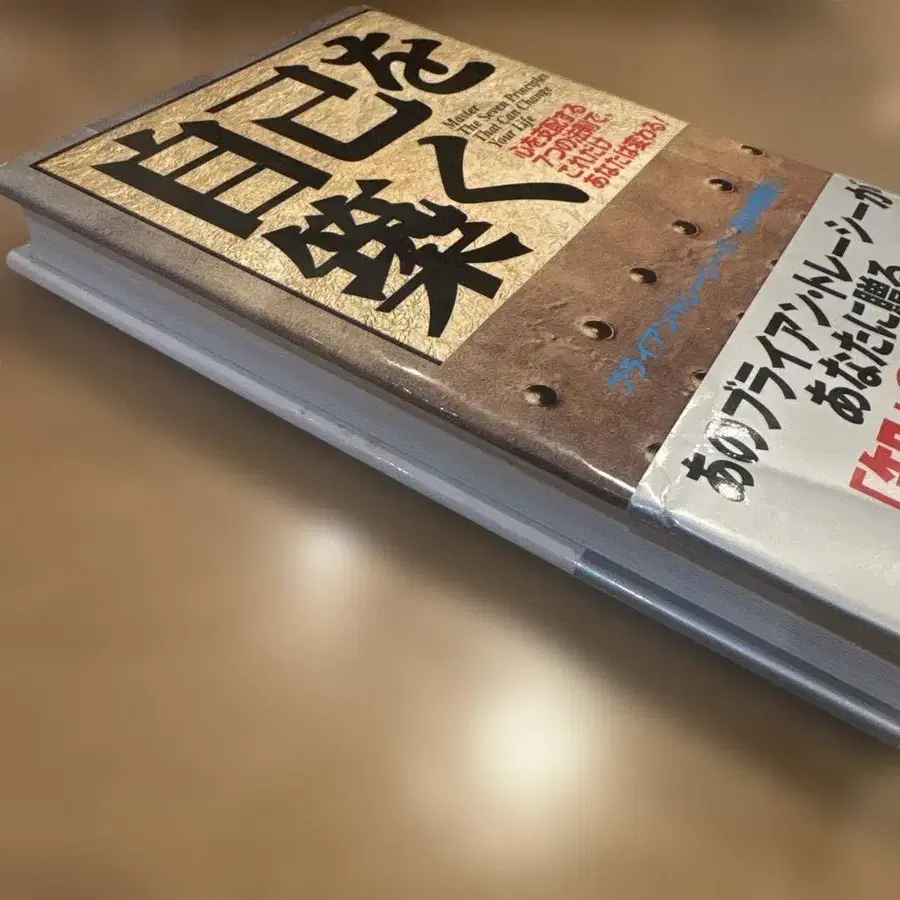 自己を
築く
Master
The Seven Principles
That Can Change
Your Life
心を支配する
7つの法則で、
これだけ
あなたは変わる!
ブライアン・トレーシー
あのブライアン・トレーシーが
あなたに贈る